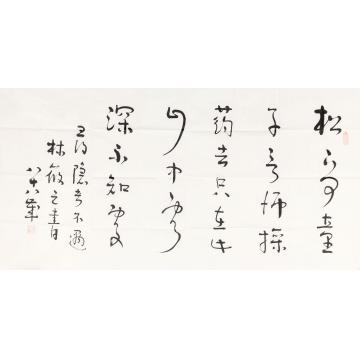 松下问童
子言师採
葯去只在此
山中云
深不知处
寻隐者不遇
林筱之书